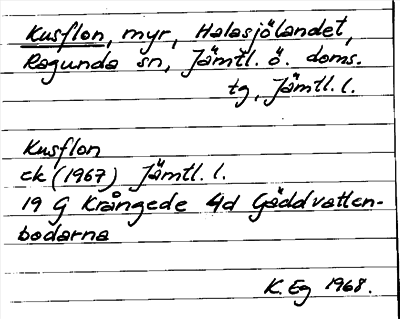 Kusflon, myr, Halasjölandet,
Ragunda sn, Jämtl. ö. doms.
tg, Jämtl. l.
Kusflon
ek (1967) Jämtl. l.
19 G Krångede 4d Gäddvatten-
bodarna
K. Eg 1968.